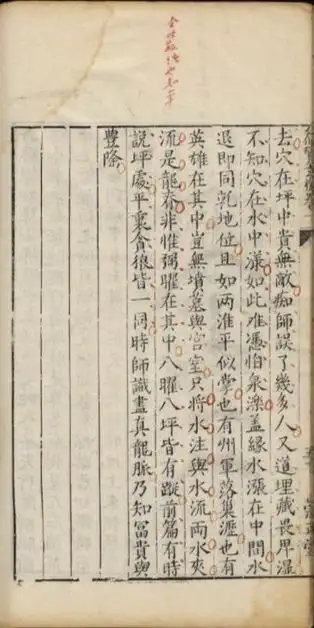 去穴在坪中貴無敵痴師誤了幾多人又道埋藏畏卑濕
不知穴在水中漾如此难憑怕泉濼盖縁水漲在中間水
退即同乾地位且如兩淮平似掌也有州軍落巢瀝也有
英雄在其中豈無墳墓與宮室只將水注與水流兩水夾
流是龍脊非惟弼曜在其中八曜八坪皆有蹤前篇有時
說坪處平裏貪狼皆一同時師識盡真龍脉乃知冨貴與
豐隆